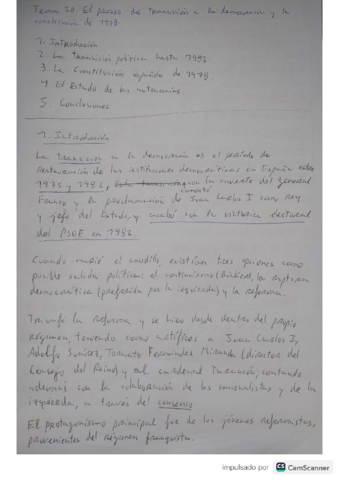 Tema 20. El proceso de transición a la democracia y la
constitución de 1978.
1. Introducción
2. La transición política hasta 1982
3. La Constitución española de 1978.
4. El Estado de las autonomías.
5. Conclusiones
1. Introducción
La transición a la democracia es el periodo de
restauración de las instituciones democráticas en España entre
1975 y 1982, con la muerte del general
comenzó
Franco y la proclamación de Juan Carlos I como rey
y jefe del Estado, y acabó con la victoria electoral
del PSOE en 1982.
Cuando murió el caudillo, existían tres opciones como
posible salida política: el continuismo (búnker), la ruptura
democrática (preferida por la izquierda) y la reforma.
Triunfó la reforma y se hizo desde dentro del propio
régimen, teniendo como artífices a Juan Carlos I,
Adolfo Suárez, Torcuato Fernández Miranda (director del
Consejo del Reino) y al cardenal Tarancón, contando
además con la colaboración de los comunistas y de la
izquierda, a través del consenso
El protagonismo principal fue de los jóvenes reformistas,
provenientes del régimen franquista.
impulsado por CS CamScanner